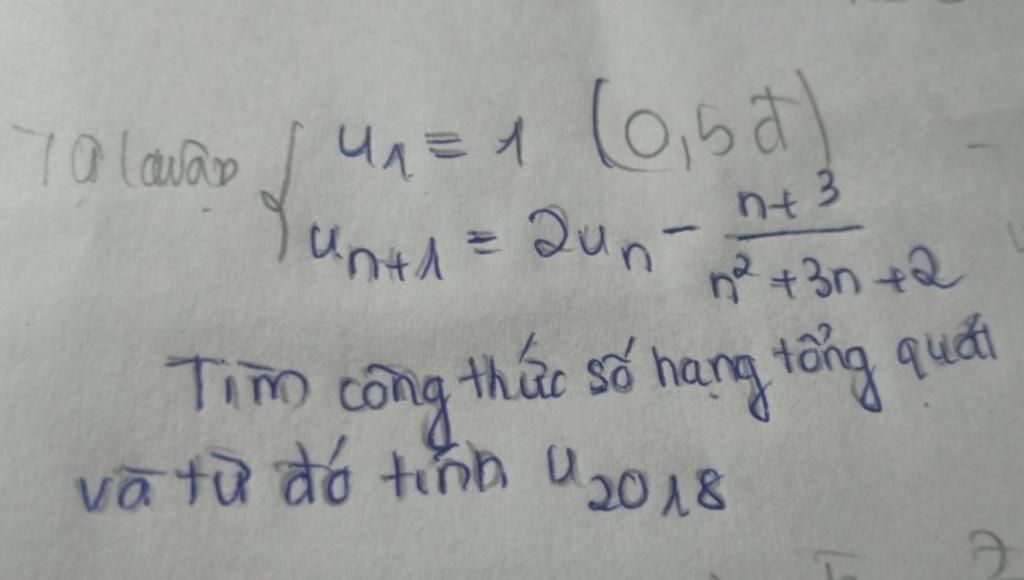 Tự luận { u₁ = 1 (0,5đ)
uₙ₊₁ = 2uₙ - (n+3)/(n²+3n+2)
Tìm công thức số hạng tổng quát
và từ đó tính u₂₀₁₈
7